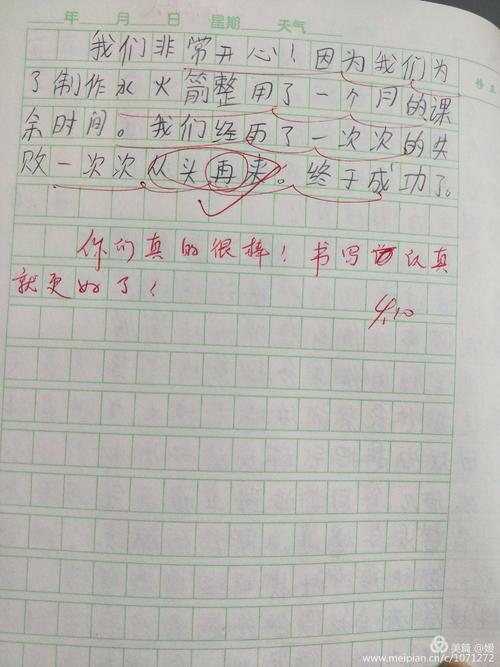 年 月 日 星期 天气
我们非常开心！因为我们为
了制作水火箭整整用了一个月的课
余时间。我们经历了一次次的失
败一次次从头再来。终于成功了。
你们真的很棒！书写认真
就更好了！
4.10
美篇 @媛
www.meipian.cn/c/1071272